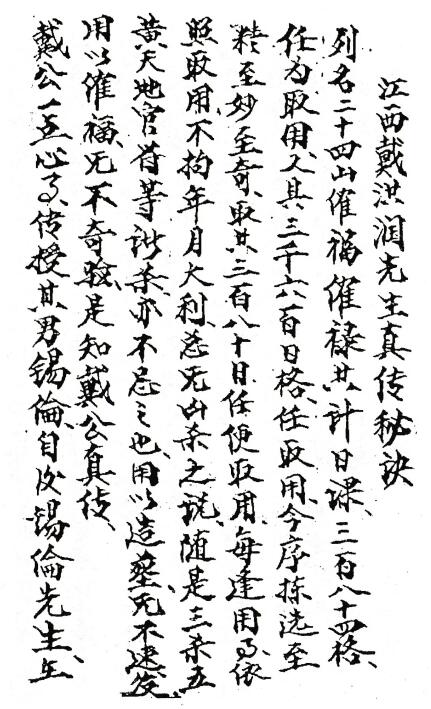 江西戴洪润先生真传秘诀
列名二十四山催福催禄共计日课、三百八十四格、
任为取用、又具三千六百日格、任取用、今序拣选至
精至妙至奇、取其三百八十日、任便取用、每逢用事、依
照取用、不拘年月大利、忌无凶杀之说、随是三杀五
黄天地官符等诸杀、亦不忌之也、用以造塟、无不速发、
用以催福、无不奇验、足知戴公真传、
戴公一点心事、传授其男锡倫、自汝锡倫先生、在